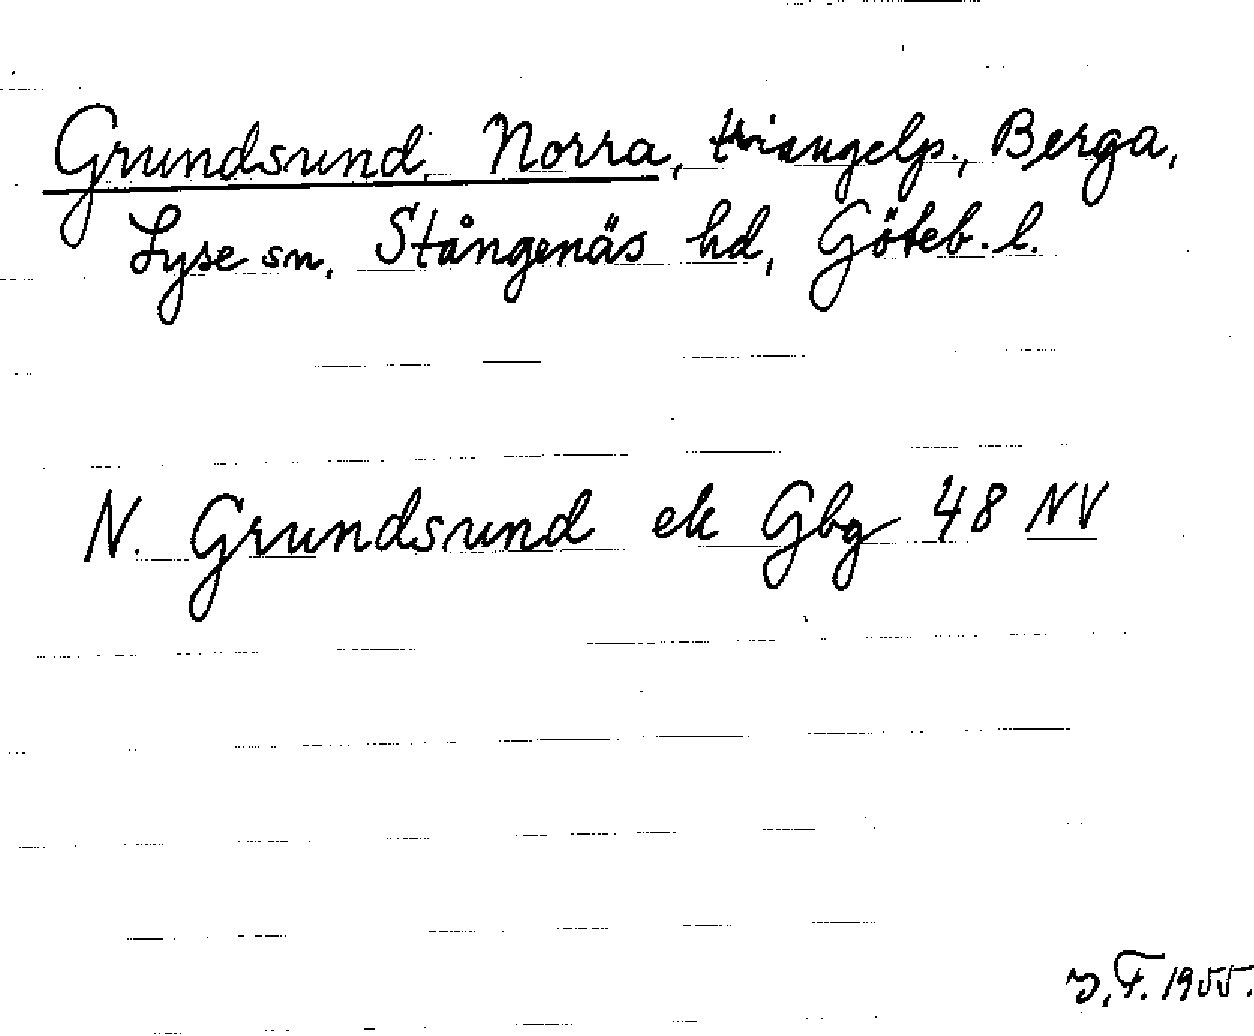 Grundsund, Norra, triangelp., Berga,
Lyse sn, Stångenäs hd, Göteb. l.
N. Grundsund ek Gbg 48 NV
J. F. 1955.